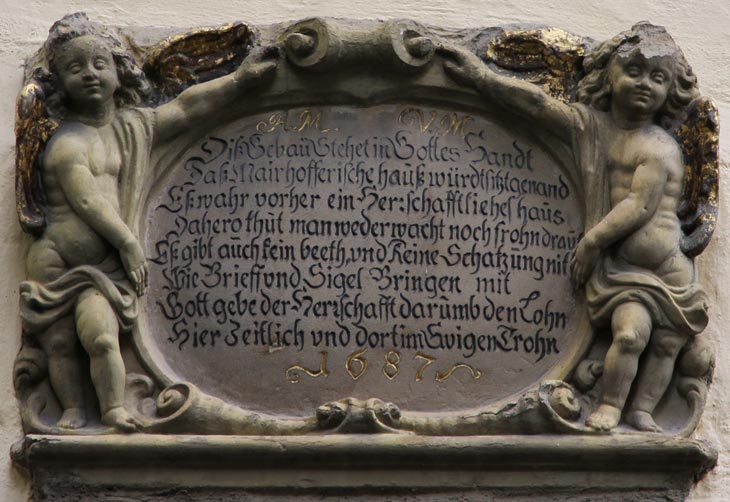 A. M. C. V. M.
Diß Gebaü Stehet in Gottes Handt
Daß Mairhofferische hauß würdt sitzt genand
Eß wahr vorher ein Her:schafftliches haus
Dahero thüt man weder wacht noch frohn drauß
Eß gibt auch kein beeth, und Keine Schatzung nit
Wie Brieff vnd Sigel Bringen mit
Gott gebe der Herrschafft darümb den Lohn
Hier Zeitlich vnd dort im Ewigen Trohn
1687